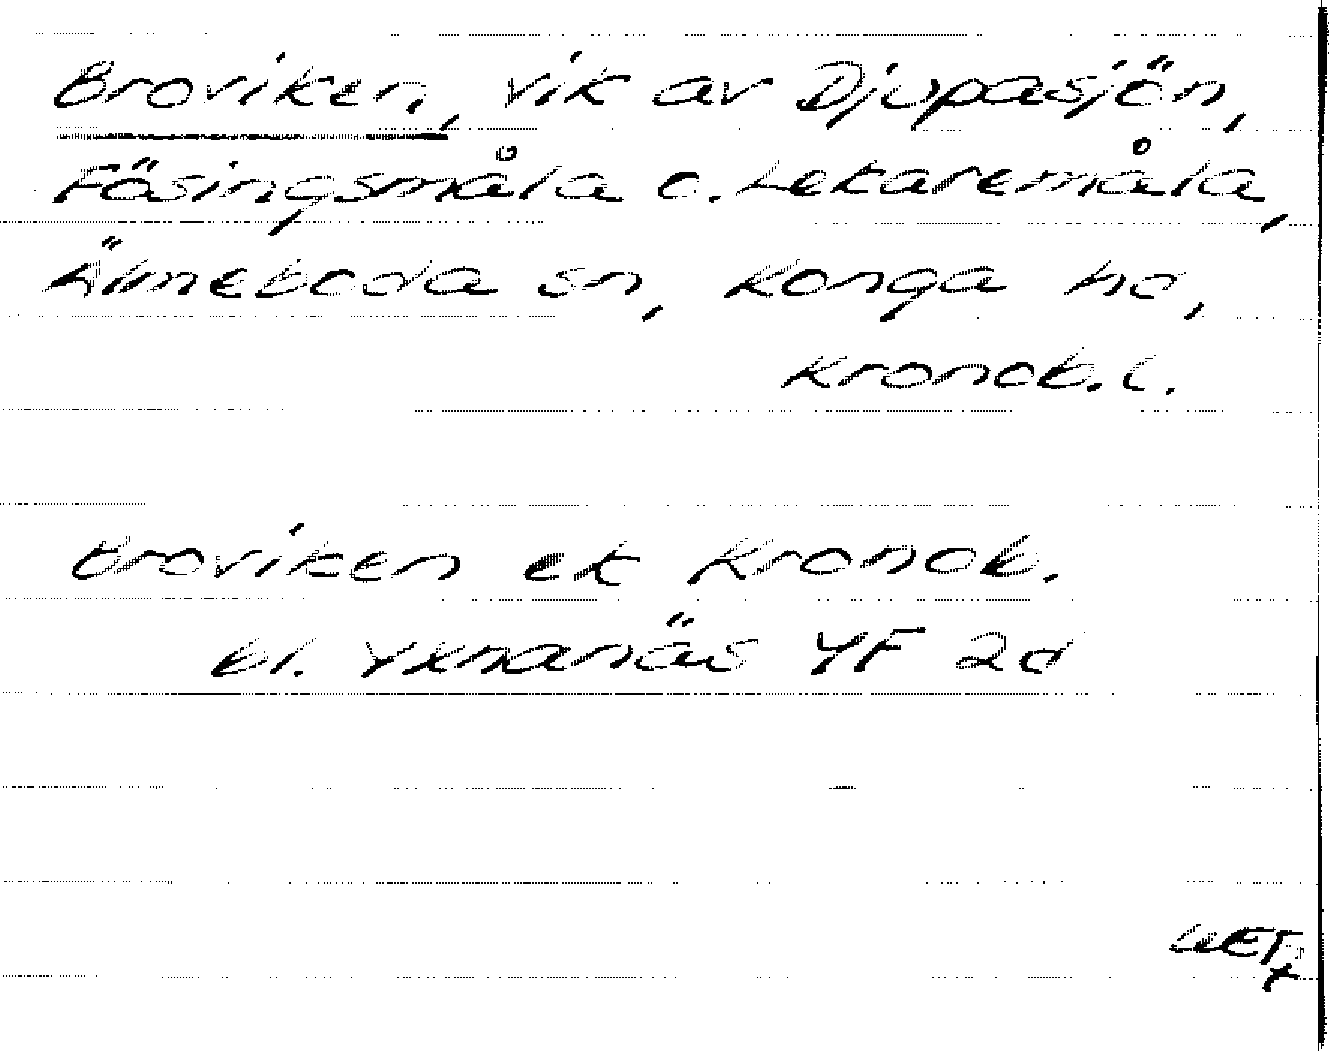 Broviken, vik av Djupasjön,
Fösingsmåla o. Lekaremåla,
Älmeboda sn, Konga hd,
Kronob. l.
Broviken ek Kronob.
bl. Yxnanäs 4F 2d